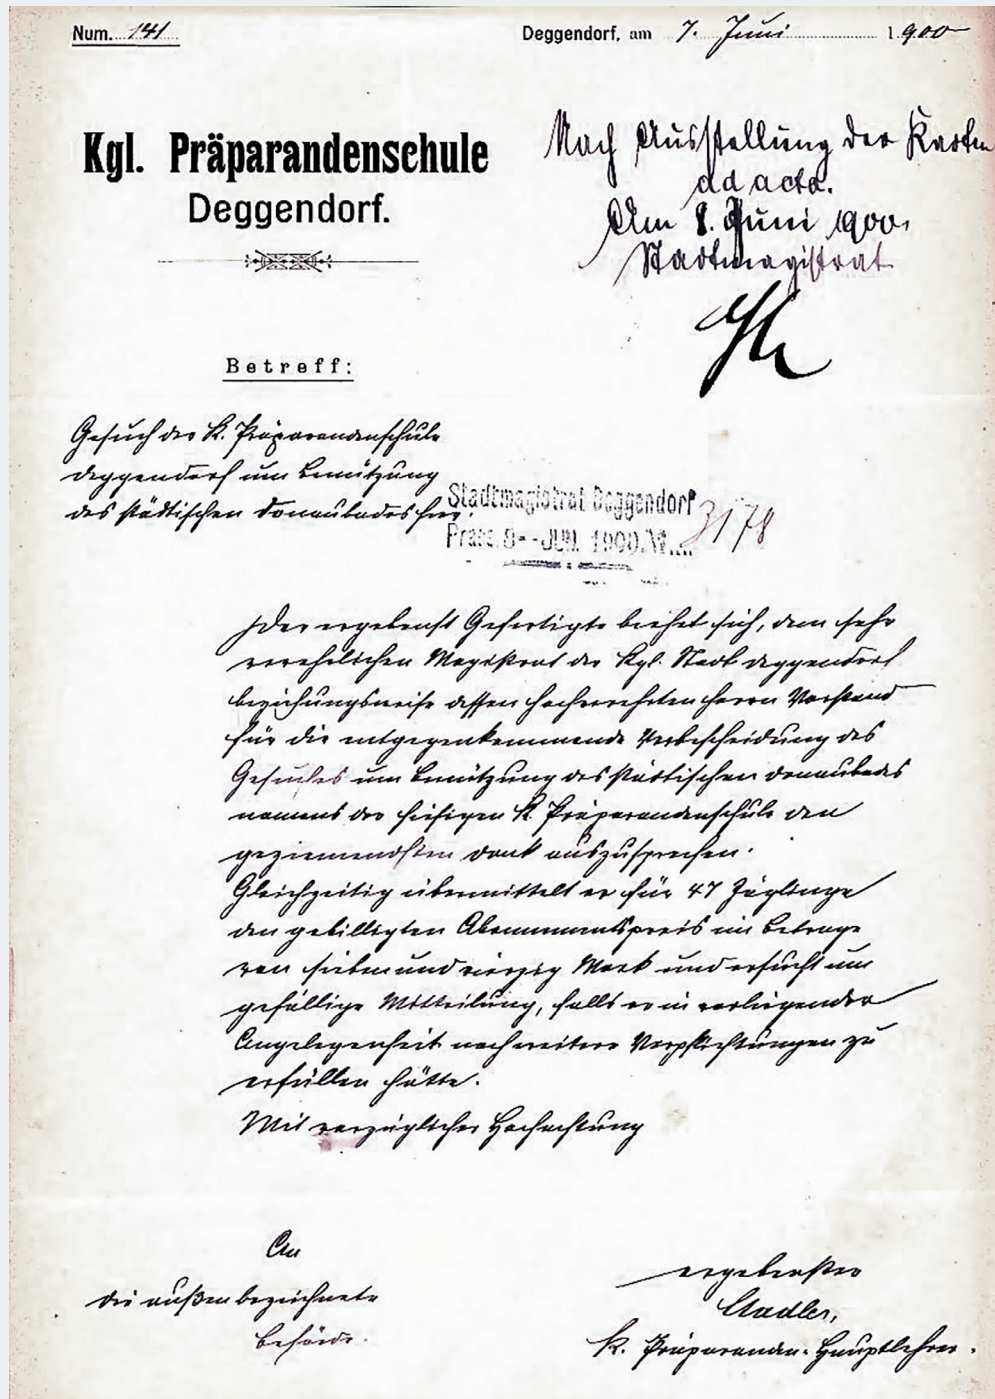 Num. 141
Deggendorf, am 7. Juni 1900
Kgl. Präparandenschule
Deggendorf.
Nach Ausstellung der Karten
ad acta.
Am 8. Juni 1900.
Stadtmagistrat
Betreff:
Gesuch der K. Präparandenschule
Deggendorf um Benützung
des städtischen Donaubades hier.
Stadtmagistrat Deggendorf
Praes. 8 - JUN. 1900. 3178
Der ergebenst Gefertigte beehrt sich, dem sehr
verehrlichen Magistrat der Kgl. Stadt Deggendorf
beziehungsweise dessen hochverehrten Herrn Vorstand
für die entgegenkommende Verbescheidung des
Gesuches um Benützung des städtischen Donaubades
namens der hiesigen K. Präparandenschule den
geziemendsten Dank auszusprechen.
Gleichzeitig übermittelt er für 47 Zöglinge
den gebilligten Abonnementspreis im Betrage
von siebenundvierzig Mark und ersucht um
gefällige Mitteilung, falls er in vorliegender
Angelegenheit noch weitere Verpflichtungen zu
erfüllen hätte.
Mit vorzüglicher Hochachtung
An
die außen bezeichnete
Behörde.
ergebenster
Stadler,
K. Präparanden-Hauptlehrer.